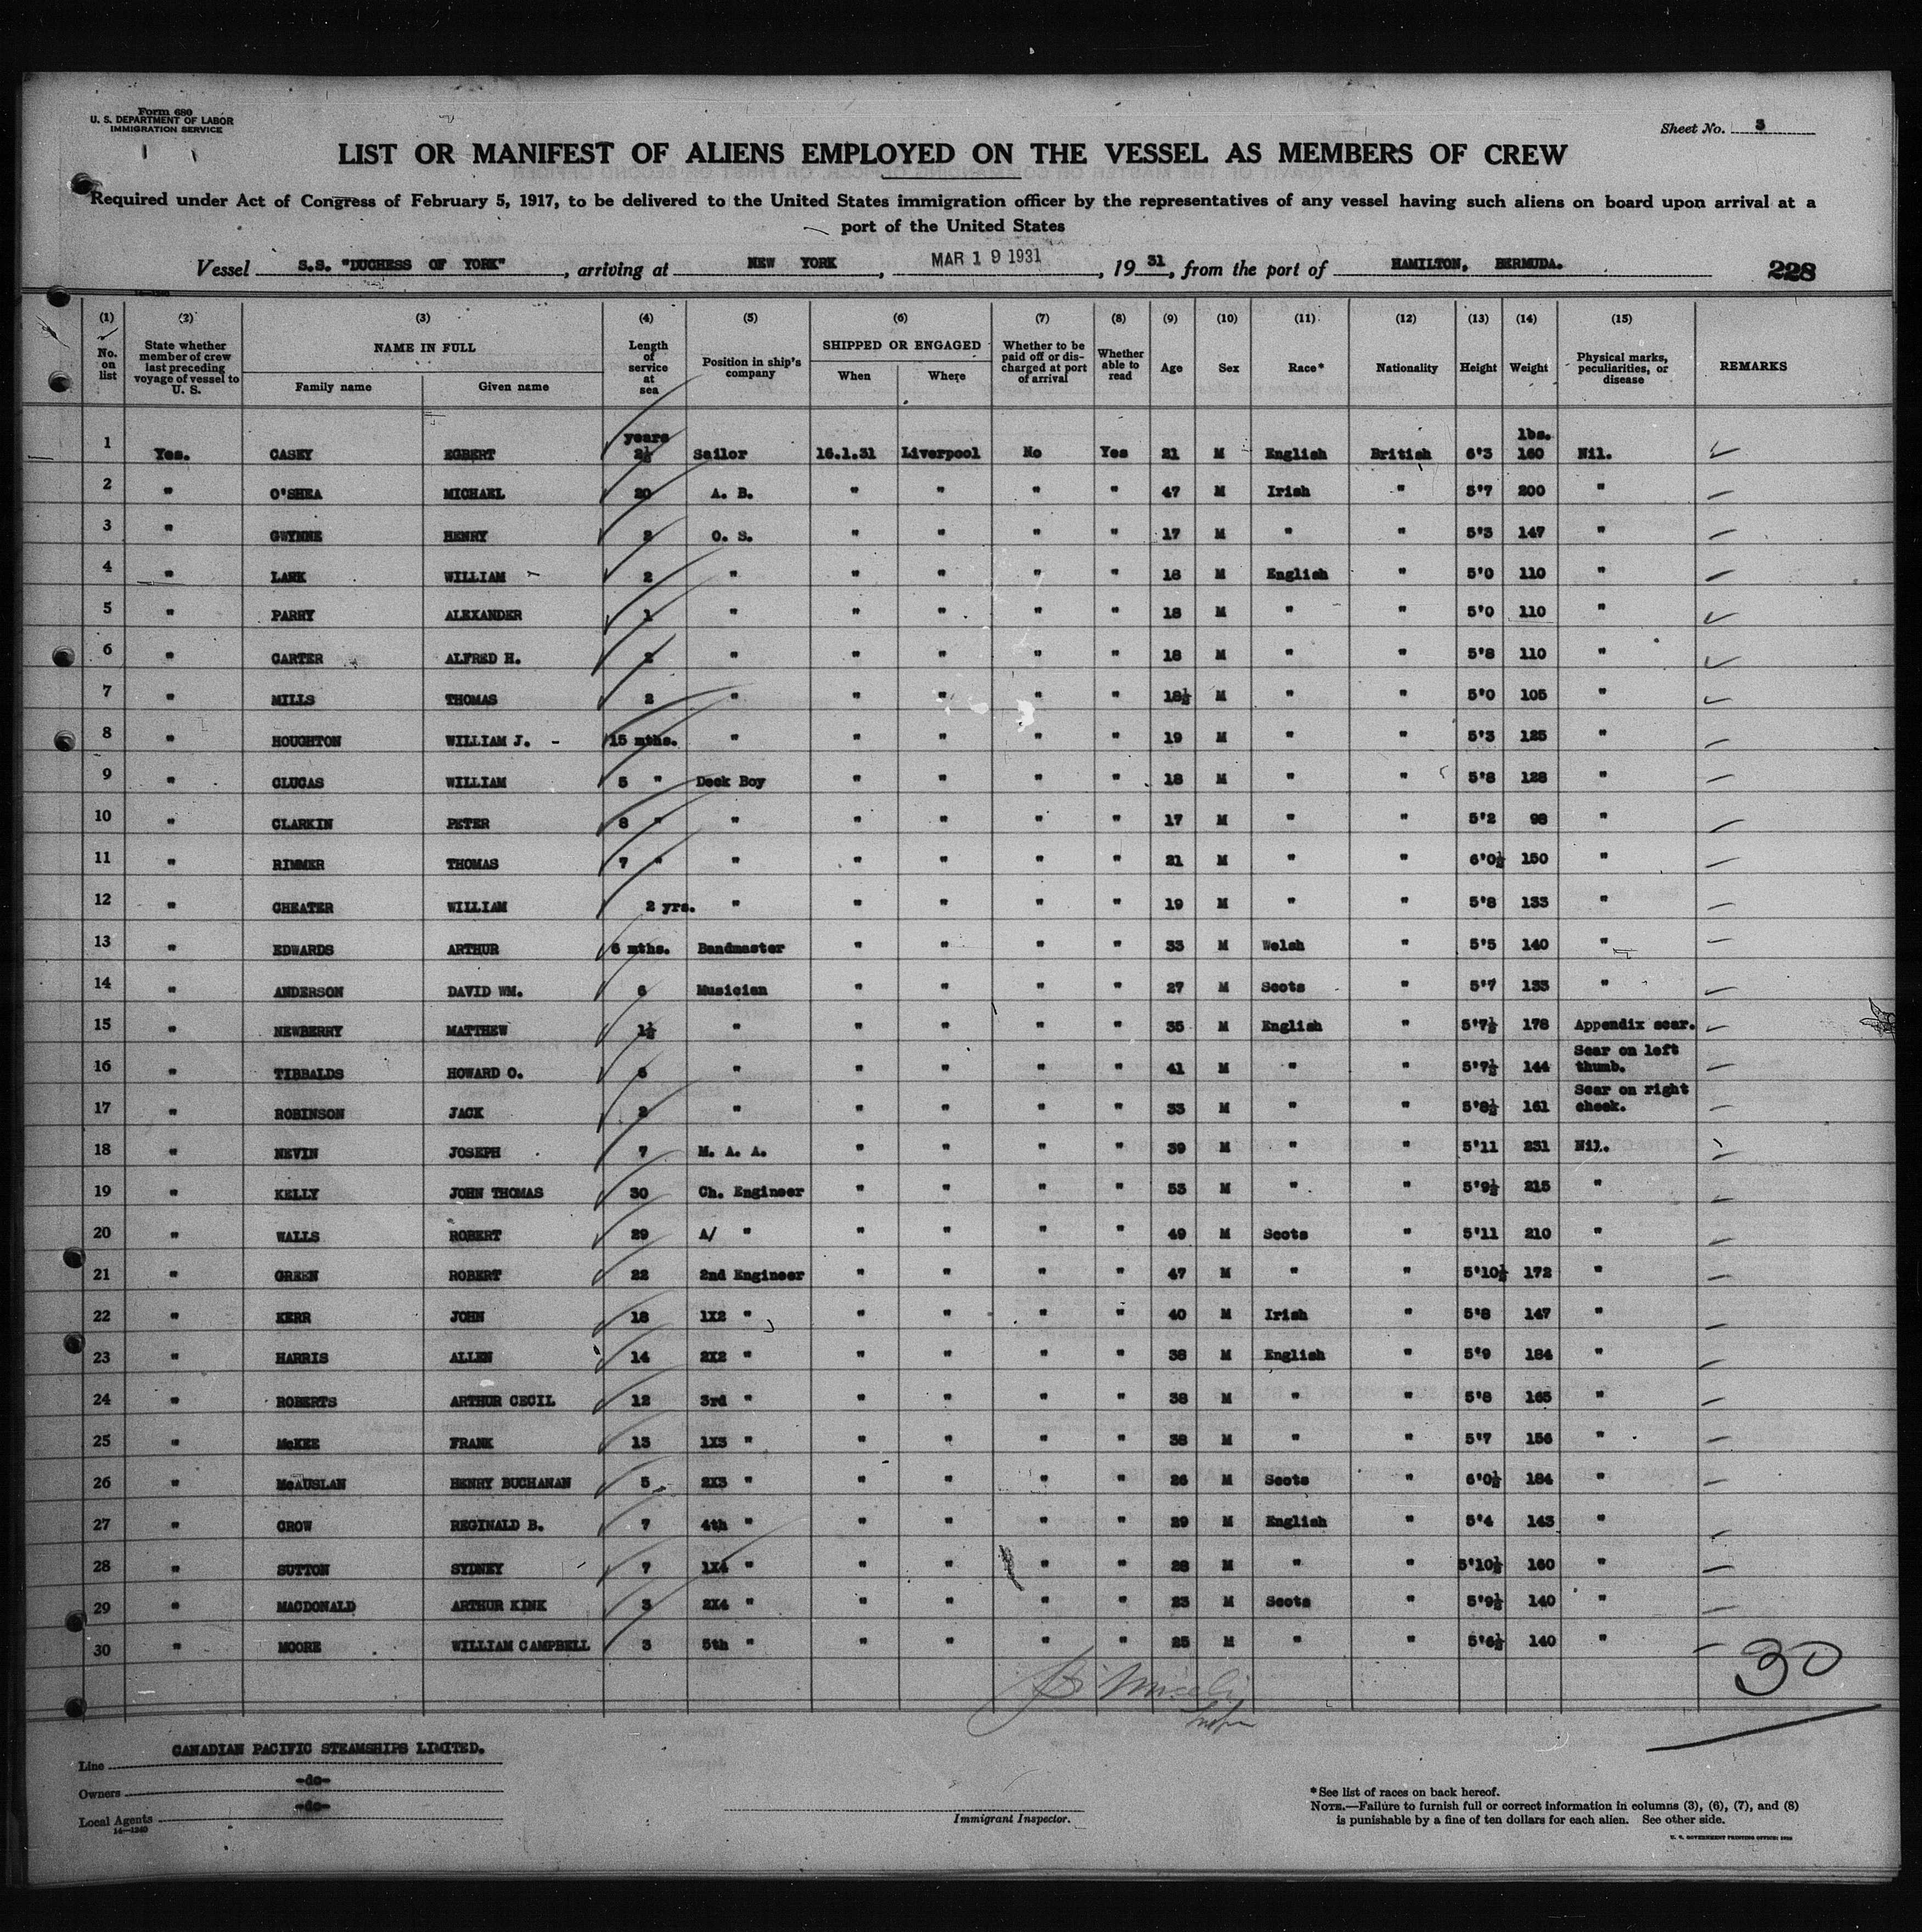 Form 680
U. S. DEPARTMENT OF LABOR
IMMIGRATION SERVICE
Sheet No. 3
LIST OR MANIFEST OF ALIENS EMPLOYED ON THE VESSEL AS MEMBERS OF CREW
Required under Act of Congress of February 5, 1917, to be delivered to the United States immigration officer by the representatives of any vessel having such aliens on board upon arrival at a
port of the United States
Vessel S.S. "DUCHESS OF YORK", arriving at NEW YORK, MAR 19 1931, 1931, from the port of HAMILTON, BERMUDA. 228
(1) (2) (3) (4) (5) (6) (7) (8) (9) (10) (11) (12) (13) (14) (15)
No. on list State whether member of crew last preceding voyage of vessel to U. S. NAME IN FULL Family name Given name Length of service at sea Position in ship's company SHIPPED OR ENGAGED When Where Whether to be paid off or discharged at port of arrival Whether able to read Age Sex Race* Nationality Height Weight Physical marks, peculiarities, or disease REMARKS
years lbs.
1 Yes. CASEY EGBERT 2½ Sailor 16.1.31 Liverpool No Yes 21 M English British 6'3 160 Nil.
2 " O'SHEA MICHAEL 20 A. B. " " " " 47 M Irish " 5'7 200 "
3 " GWYNNE HENRY 2 O. S. " " " " 17 M " " 5'3 147 "
4 " LARK WILLIAM 2 " " " " " 18 M English " 5'0 110 "
5 " PARRY ALEXANDER 1 " " " " " 18 M " " 5'0 110 "
6 " CARTER ALFRED H. 2 " " " " " 18 M " " 5'8 110 "
7 " MILLS THOMAS 2 " " " " " 18½ M " " 5'0 105 "
8 " HOUGHTON WILLIAM J. 15 mths. " " " " " 19 M " " 5'3 125 "
9 " CLUCAS WILLIAM 5 " Deck Boy " " " " 18 M " " 5'8 128 "
10 " CLARKIN PETER 8 " " " " " " 17 M " " 5'2 98 "
11 " RIMMER THOMAS 7 " " " " " " 21 M " " 6'0½ 150 "
12 " CHEATER WILLIAM 2 yrs. " " " " " 19 M " " 5'8 133 "
13 " EDWARDS ARTHUR 6 mths. Bandmaster " " " " 33 M Welsh " 5'5 140 "
14 " ANDERSON DAVID WM. 6 Musician " " " " 27 M Scots " 5'7 133 "
15 " NEWBERRY MATTHEW 1½ " " " " " 35 M English " 5'7½ 178 Appendix scar.
16 " TIBBALDS HOWARD O. 6 " " " " " 41 M " " 5'7½ 144 Scar on left thumb.
17 " ROBINSON JACK 2 " " " " " 33 M " " 5'8½ 161 Scar on right cheek.
18 " NEVIN JOSEPH 7 M. A. A. " " " " 39 M " " 5'11 231 Nil.
19 " KELLY JOHN THOMAS 30 Ch. Engineer " " " " 53 M " " 5'9½ 215 "
20 " WALLS ROBERT 29 A/ " " " " " 49 M Scots " 5'11 210 "
21 " GREEN ROBERT 22 2nd Engineer " " " " 47 M " " 5'10½ 172 "
22 " KERR JOHN 18 1X2 " " " " " 40 M Irish " 5'8 147 "
23 " HARRIS ALLEN 14 2X2 " " " " " 38 M English " 5'9 184 "
24 " ROBERTS ARTHUR CECIL 12 3rd " " " " " 38 M " " 5'8 165 "
25 " McKEE FRANK 13 1X3 " " " " " 38 M " " 5'7 156 "
26 " McAUSLAN HENRY BUCHANAN 5 2X3 " " " " " 26 M Scots " 6'0½ 184 "
27 " CROW REGINALD B. 7 4th " " " " " 29 M English " 5'4 143 "
28 " SUTTON SYDNEY 7 1X4 " " " " " 28 M " " 5'10½ 160 "
29 " MACDONALD ARTHUR KINK 3 2X4 " " " " " 23 M Scots " 5'9½ 140 "
30 " MOORE WILLIAM CAMPBELL 3 5th " " " " " 25 M " " 5'6½ 140 "
30
Line CANADIAN PACIFIC STEAMSHIPS LIMITED.
Owners -do-
Local Agents -do-
14—1240
Immigrant Inspector.
*See list of races on back hereof.
NOTE.—Failure to furnish full or correct information in columns (3), (6), (7), and (8)
is punishable by a fine of ten dollars for each alien. See other side.